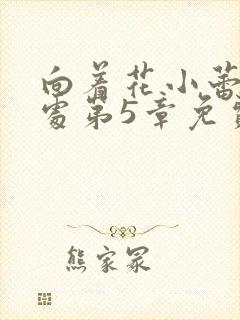 向着花小蕾
处第5章免费
熊家冢